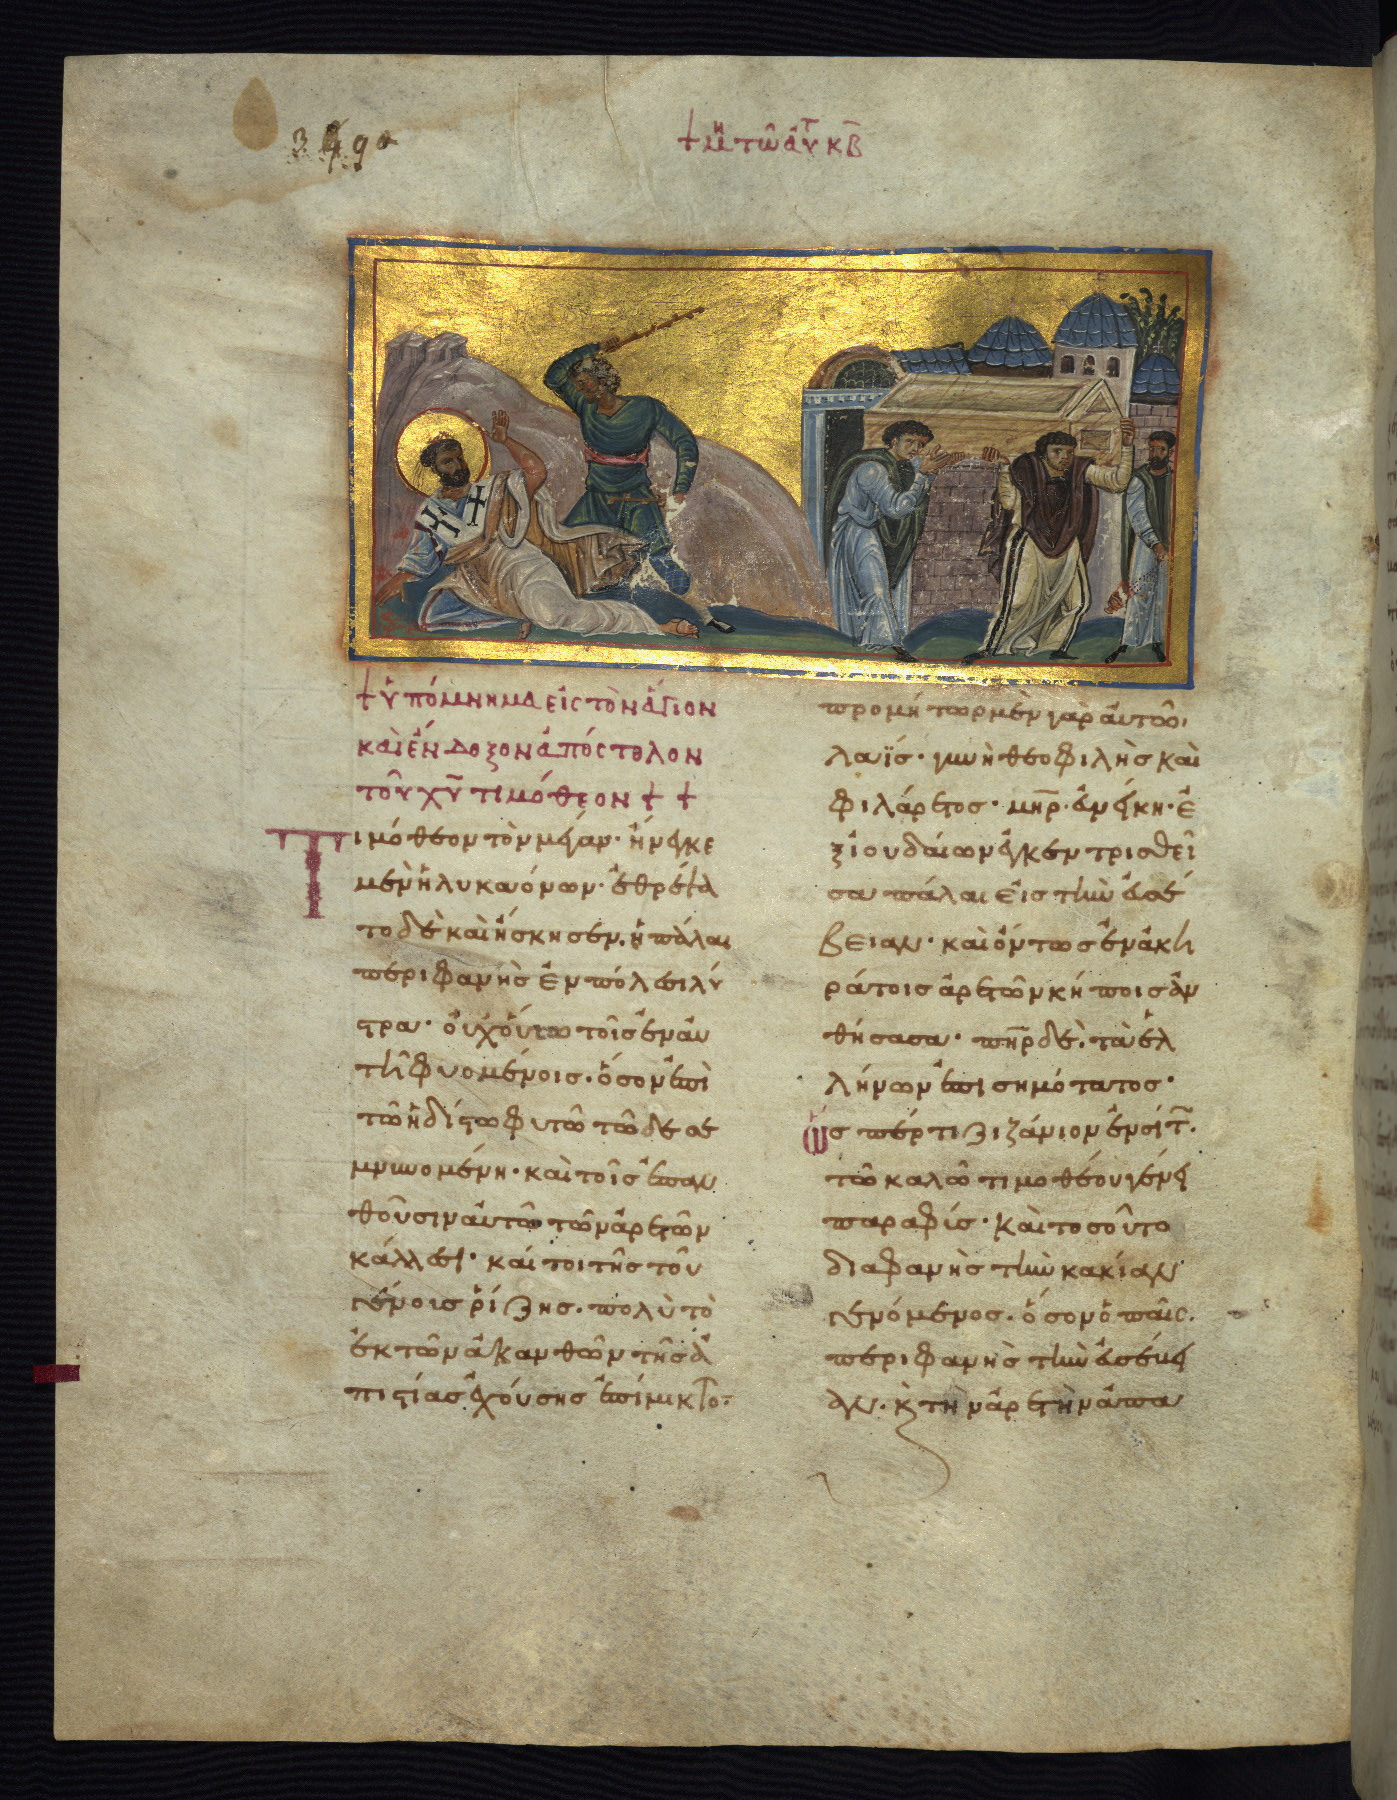 + μη τῶ αὐτ κβ
+ ὑπόμνημα εἰς τὸν ἅγιον
καὶ ἔνδοξον ἀπόστολον
τοῦ χυ τιμόθεον + +
Τιμόθεον τὸν μέγαν· ἤνεγκε
μὲν ἡ λυκαόνων· ἐθρέψα
το δὲ καὶ ἤσκησεν. ἡ πάλαι
περιφανὴς ἐν πόλεσι λύ
στρα· οὐχ οὕτω τοῖς ἐν αὐ
τῆ φυομένοις· ὅσον ἐπὶ
τῶ ἡδίστω φυτῶ τῶδε σε
μνυνομένη· καὶ τοῖς ἐπαν
θοῦσιν αὐτῶ τῶν ἀρετῶν
κάλλεσι· καίτοι τῆς τοῦ
γένους ῥίζης. πολὺ τὸ
ἐκ τῶν ἀκανθῶν τῆς ἀ
πιστίας ἐχούσης ἐπίμικτο·
προμήτωρ μὲν γὰρ αὐτῶ.
λαϊς· γυνὴ θεοφιλὴς καὶ
φιλάρετος· μηρ· εὐνείκη· ἐ
ξ ἰουδαίων ἐγκεντρισθεῖ
σα πάλαι εἰς τὴν εὐσέ
βειαν· καὶ ὄντως ἐν ἀκη
ράτοις ἀρετῶν κήποις ἀν
θήσασα· πηρ δὲ. τὰ ἑλ
λήνων ἐπισημότατος·
ὥσπερ τι ζιζάνιον ἐν σίτ.
τῶ καλῶ τιμοθέου γένει
παραφύς· καὶ τοσοῦτο
διαφανὴς τὴν κακίαν
γενόμενος. ὅσον ὁ παῖς.
περιφανὴς τὴν εὐσέβει
αν. κ τὴν ἀρετὴν ἅπα